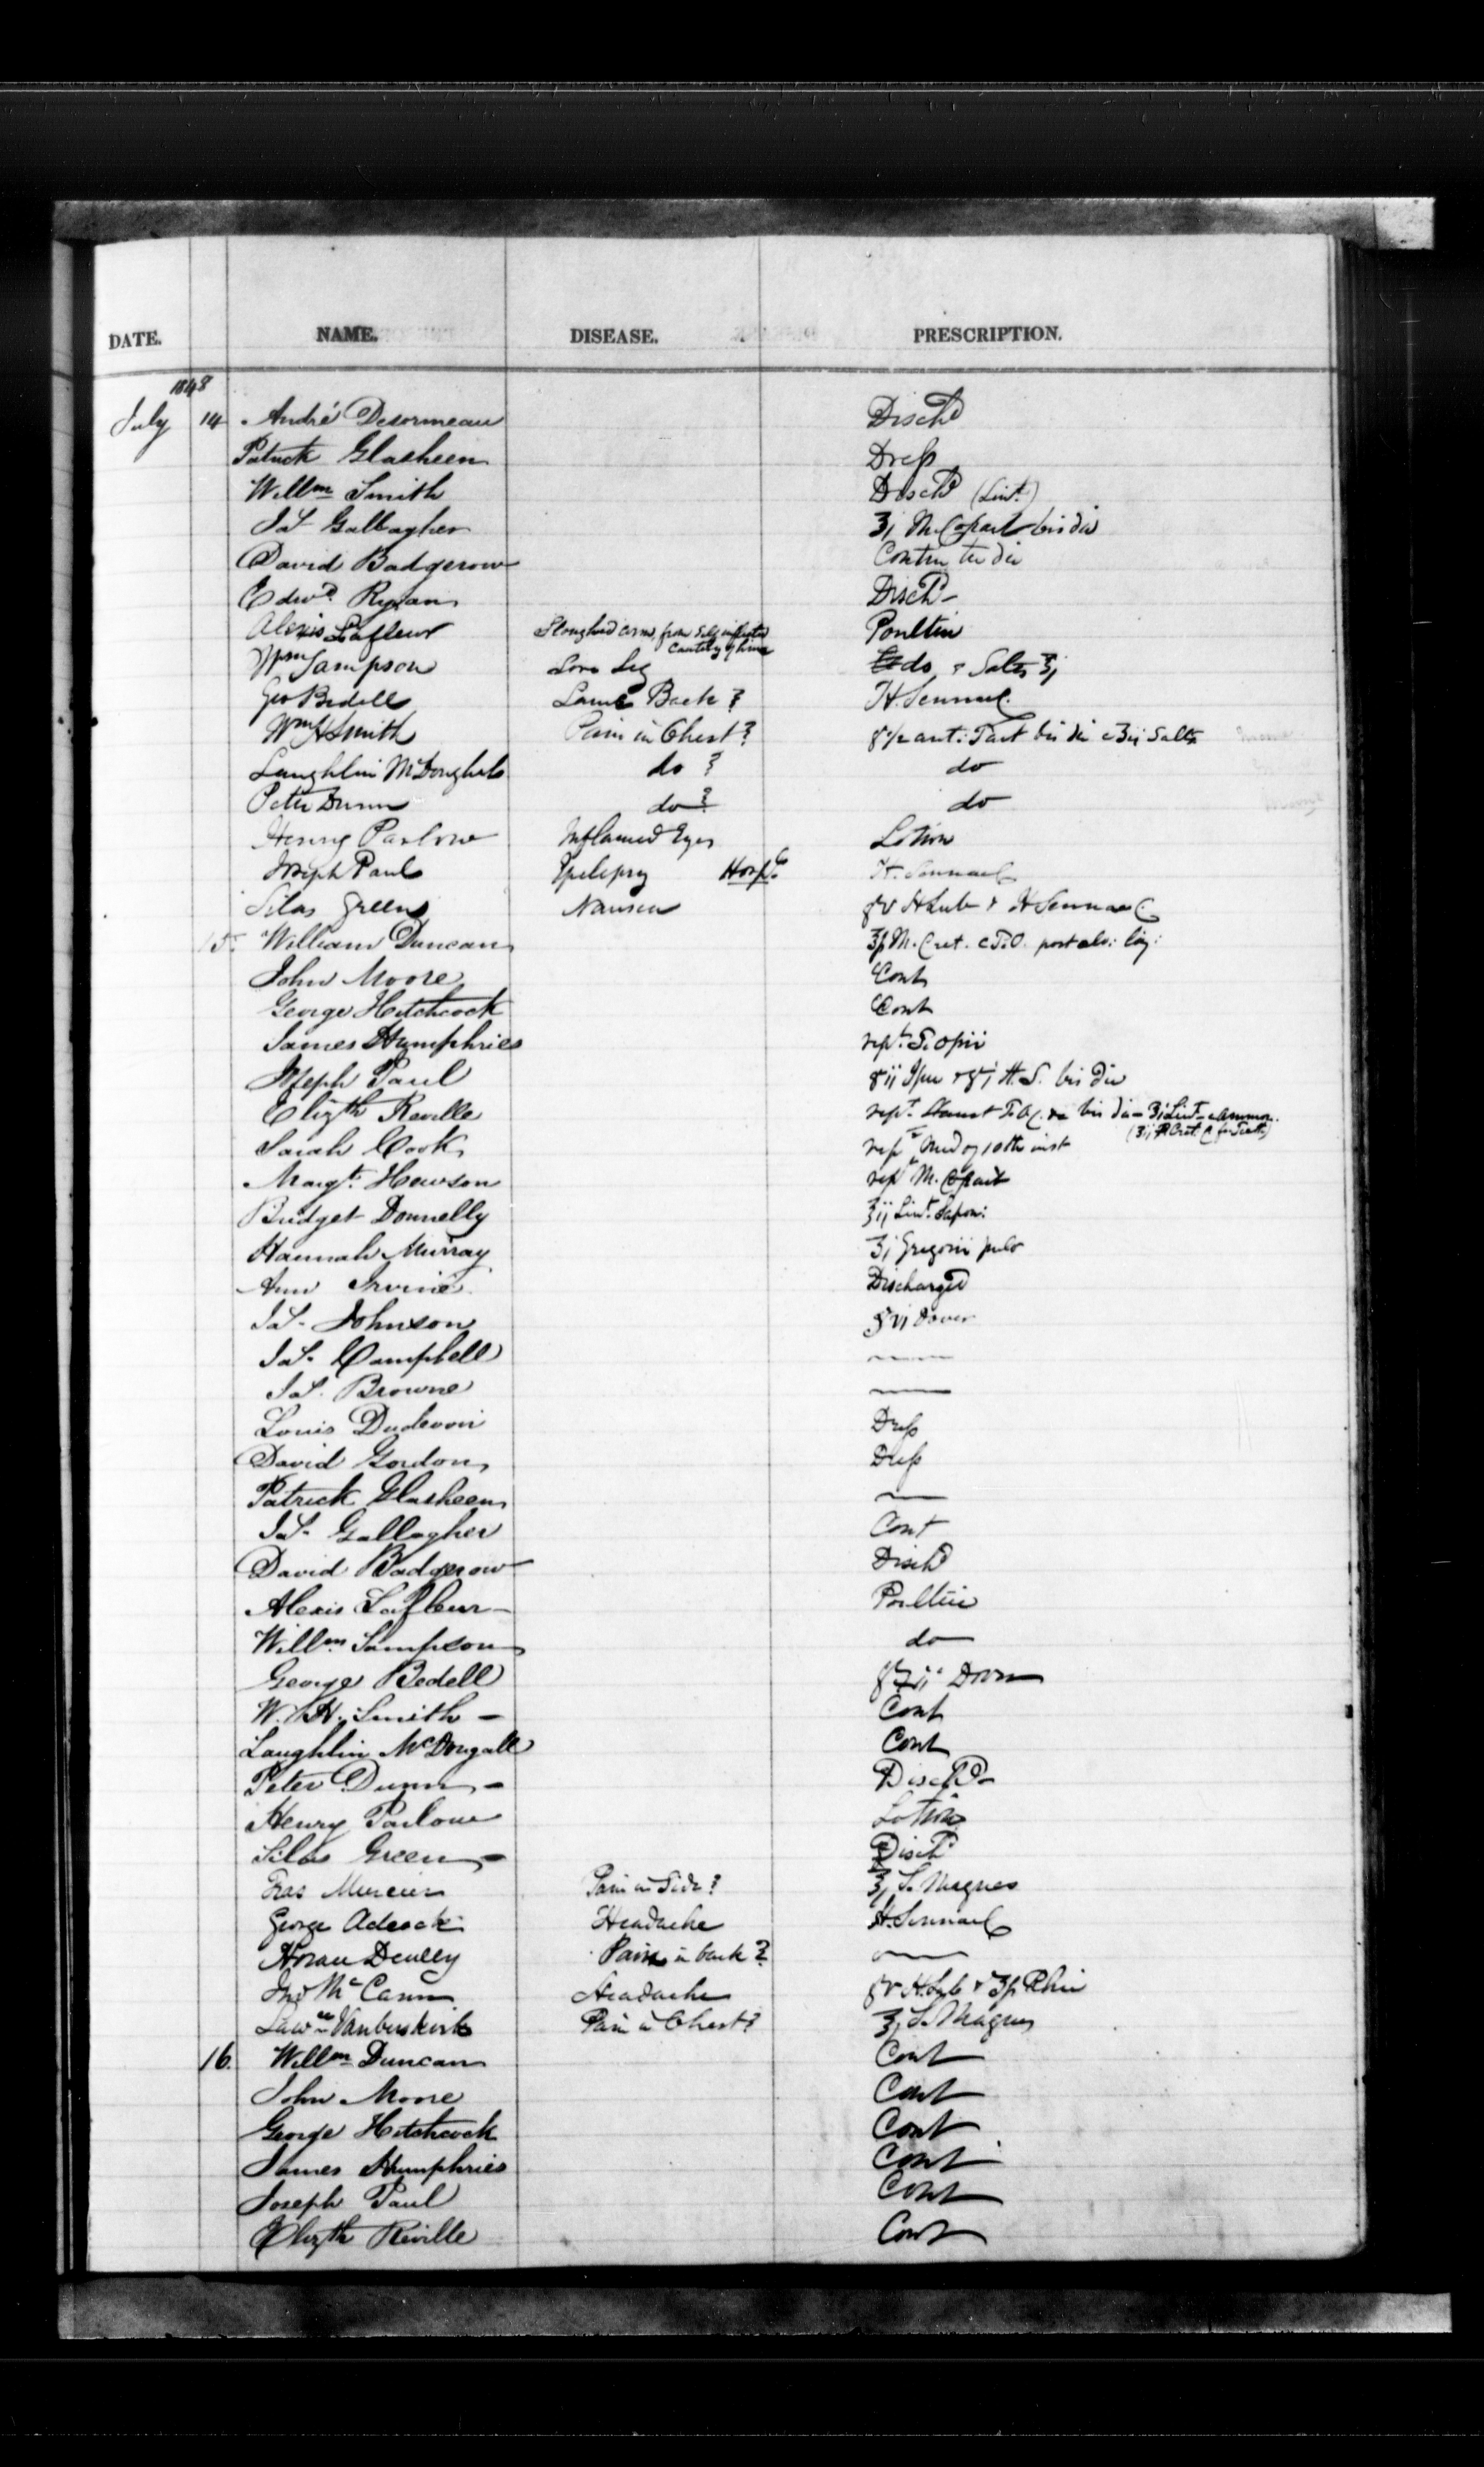 DATE. NAME. DISEASE. PRESCRIPTION.
1848
July 14 André Desormeau Dischd
Patrick Glasheen Dress
Willm Smith Dischd (Lint.)
Jas Gallagher ʒj M. Copaib bis die
David Badgerow Contin ter die
Edwd. Ryan Dischd-
Alexis Lafleur Sloughed arm, from self inflicted Poultice
Cautery of lime
Wm Sampson Sore Leg do & Salts ʒj
Geo Bedell Lame Back? H. Sennae C.
Wm H Smith Pain in Chest? gr ½ ant: Tart bis die c ʒij Salts
Laughlin McDoughal do ? do
Peter Dunn do ? do
Henry Parlow Inflamed Eyes Lotion
Joseph Paul Epilepsy Hospl. H. Sennae C
Silas Green Nausea gr v H Sub & H Sennae C.
15. William Duncan M. Cret. c T.O. post
John Moore Cont
George Hitchcock Cont
James Humphries rept. T. Opii
Joseph Paul gr ij Ipec & gr j H.S. bis die
Elizth Reville rept. Haust bis die - ʒj Lint. Ammon.
Sarah Cook rept Med of 10th inst
Margt. Howson rept M. Copaib
Bridget Donnelly ʒij Lint. Sapon:
Hannah Murray ʒj Gregorii pulv
Ann Irvine Discharged
Jas. Johnson gr vj Dover
Jas. Campbell
Jas. Browne
Louis Dudevoir Dress
David Gordon Dress
Patrick Glasheen
Jas. Gallagher Cont
David Badgerow Dischd
Alexis Lafleur - Poultice
Willm. Sampson do
George Bedell Dover
W. H. Smith - Cont
Laughlin McDougall Cont
Peter Dunn - Dischd-
Henry Parlow Lotion
Silas Green - Dischd
Fras Mercier Pain in Side? ʒj S. Magnes
George Adcock Headache H. Sennae C
Horan Pain in back?
Jno McCann Headache gr v H. Sub & Rhei
Lawce Vanbuskirk Pain in Chest? ʒj S. Magnes
16. Willm Duncan Cont
John Moore Cont
George Hitchcock Cont
James Humphries Cont
Joseph Paul Cont
Elizth Reville Cont